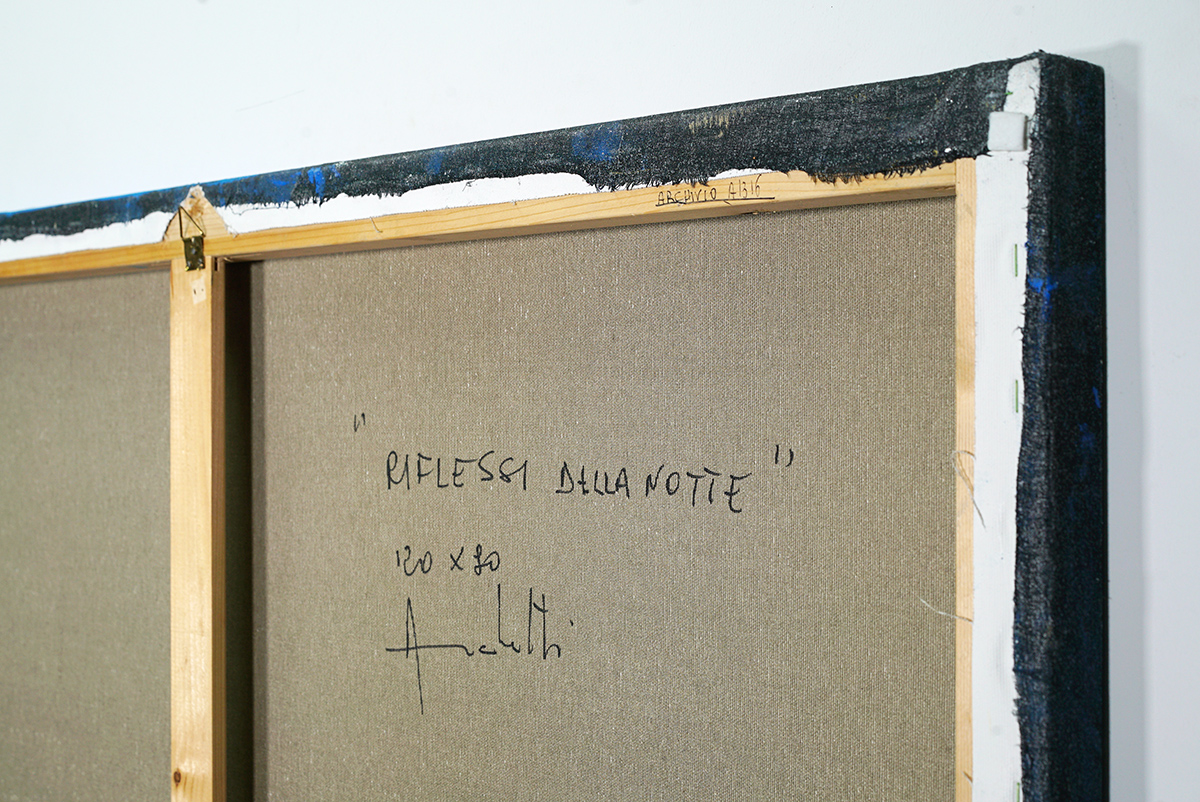 ARCHIVIO A/316
" RIFLESSI DELLA NOTTE "
120 x 80